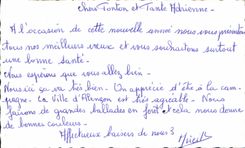 Chers Tonton et Tante Adrienne -
A l'occasion de cette nouvelle année nous vous présentons
tous nos meilleurs vœux et vous souhaitons surtout
une bonne santé -
Nous espérons que vous allez bien -
Nous ici ça va très bien. On apprécie d'être à la cam-
pagne. La Ville d'Alençon est très agréable - Nous
faisons de grandes ballades en forêt et cela nous donne
de bonnes couleurs -
Affectueux baisers de nous 3